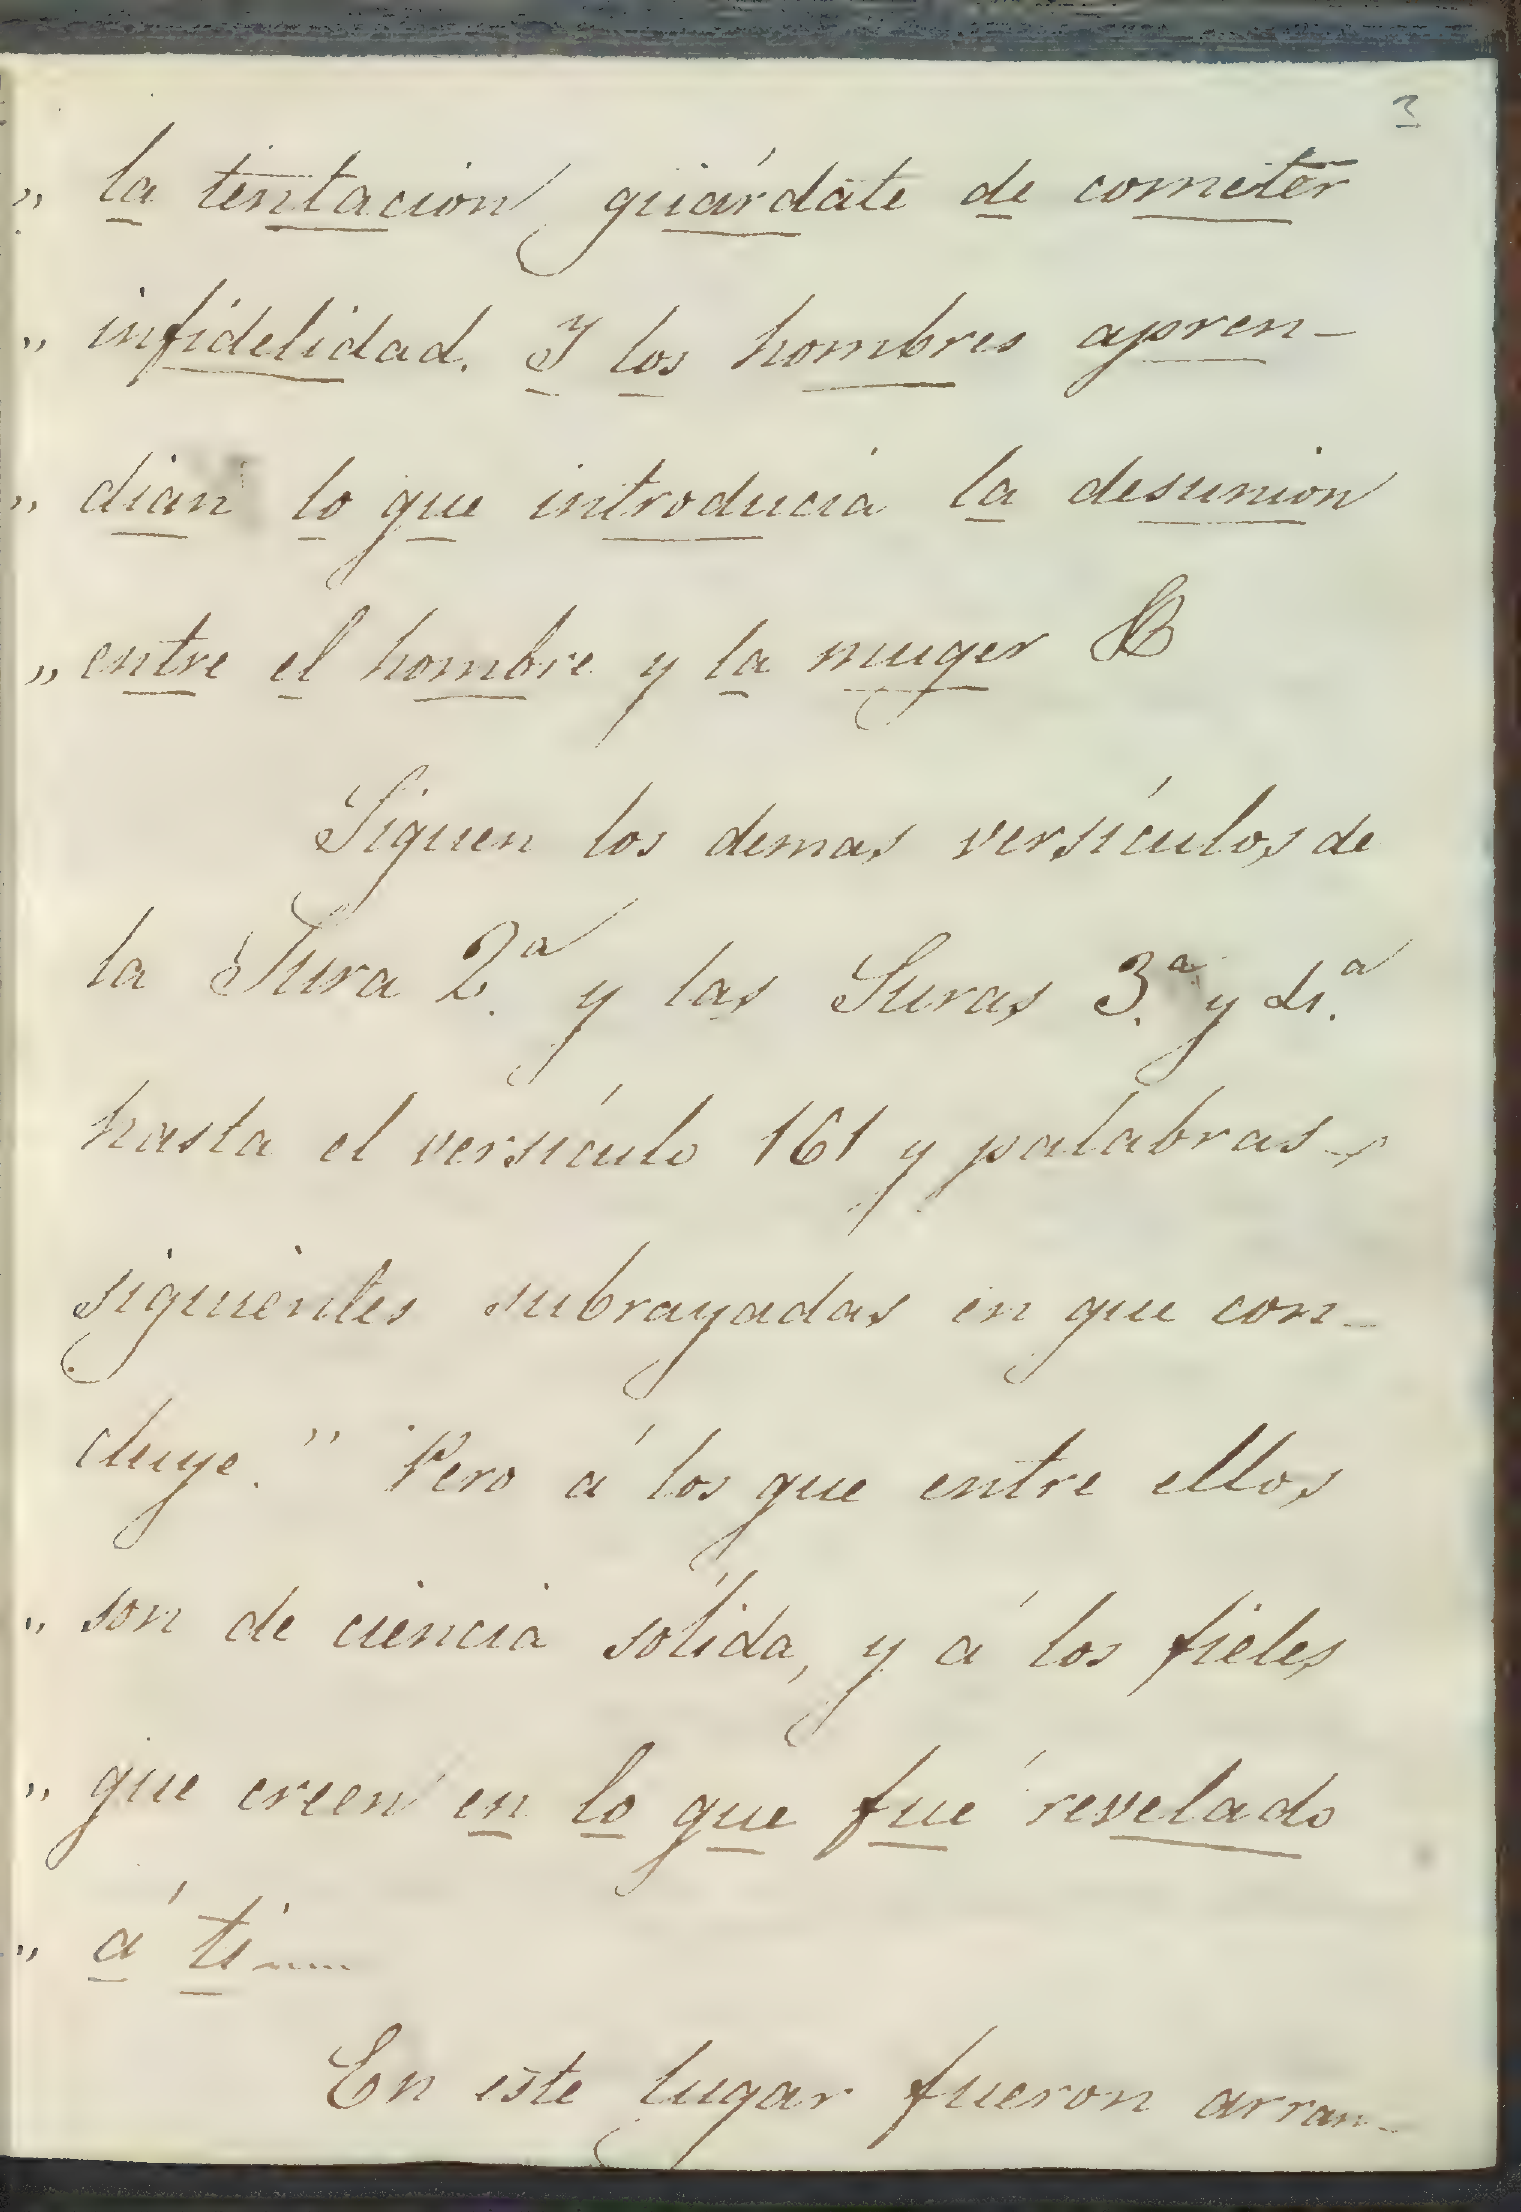 3
„ la tentacion guárdate de cometer
„ infidelidad. Y los hombres apren-
„ dian lo que introducia la desunion
„ entre el hombre y la muger &
Siguen los demas versículos de
la Sura 2.ª y las Suras 3.ª y 4.ª
hasta el versículo 161 y palabras
siguientes subrayadas en que con-
cluye. " Pero á los que entre ellos
„ son de ciencia sólida, y á los fieles
„ que creen en lo que fué revelado
„ á ti....
En este lugar fueron arran-